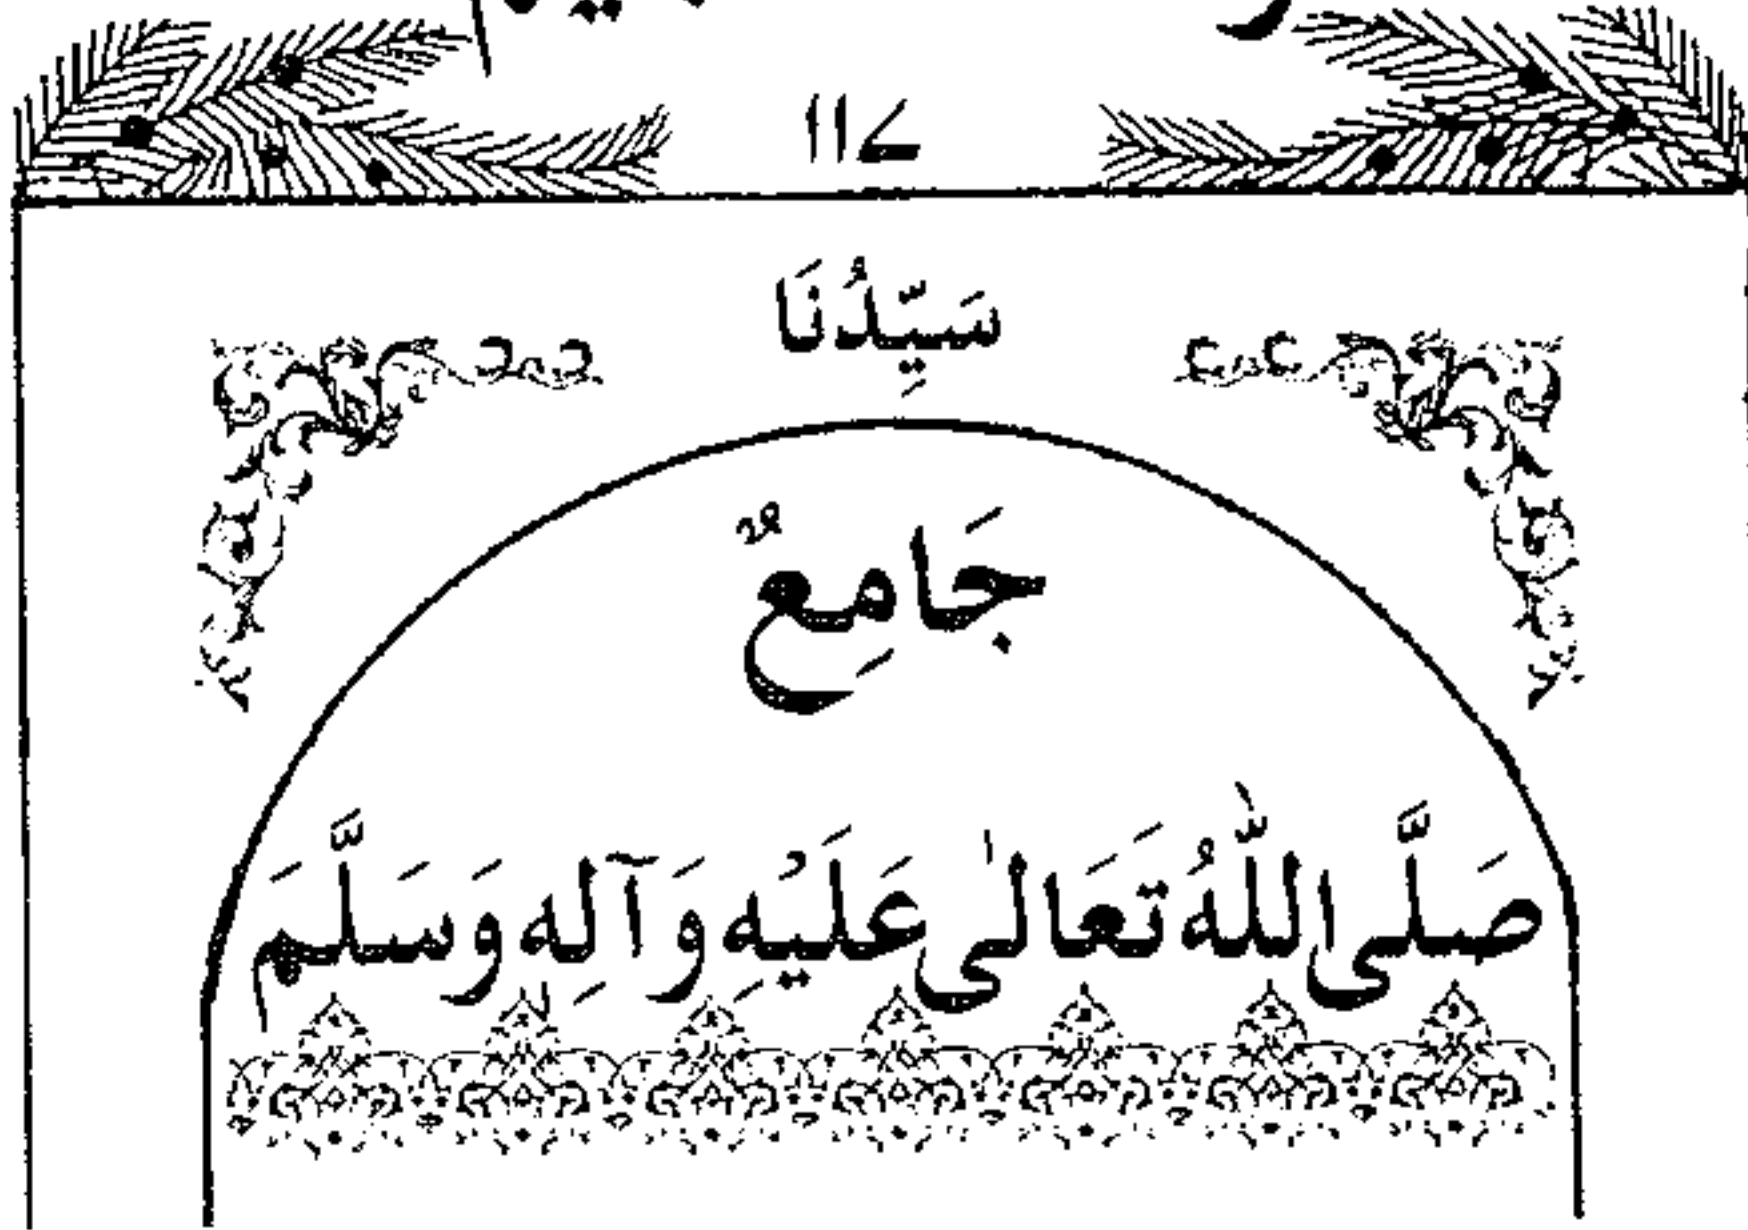 ۱۱۷
سَيِّدُنَا
جَامِعٌ
صَلَّى اللّٰهُ تَعَالٰى عَلَيْهِ وَآلِهِ وَسَلَّمَ